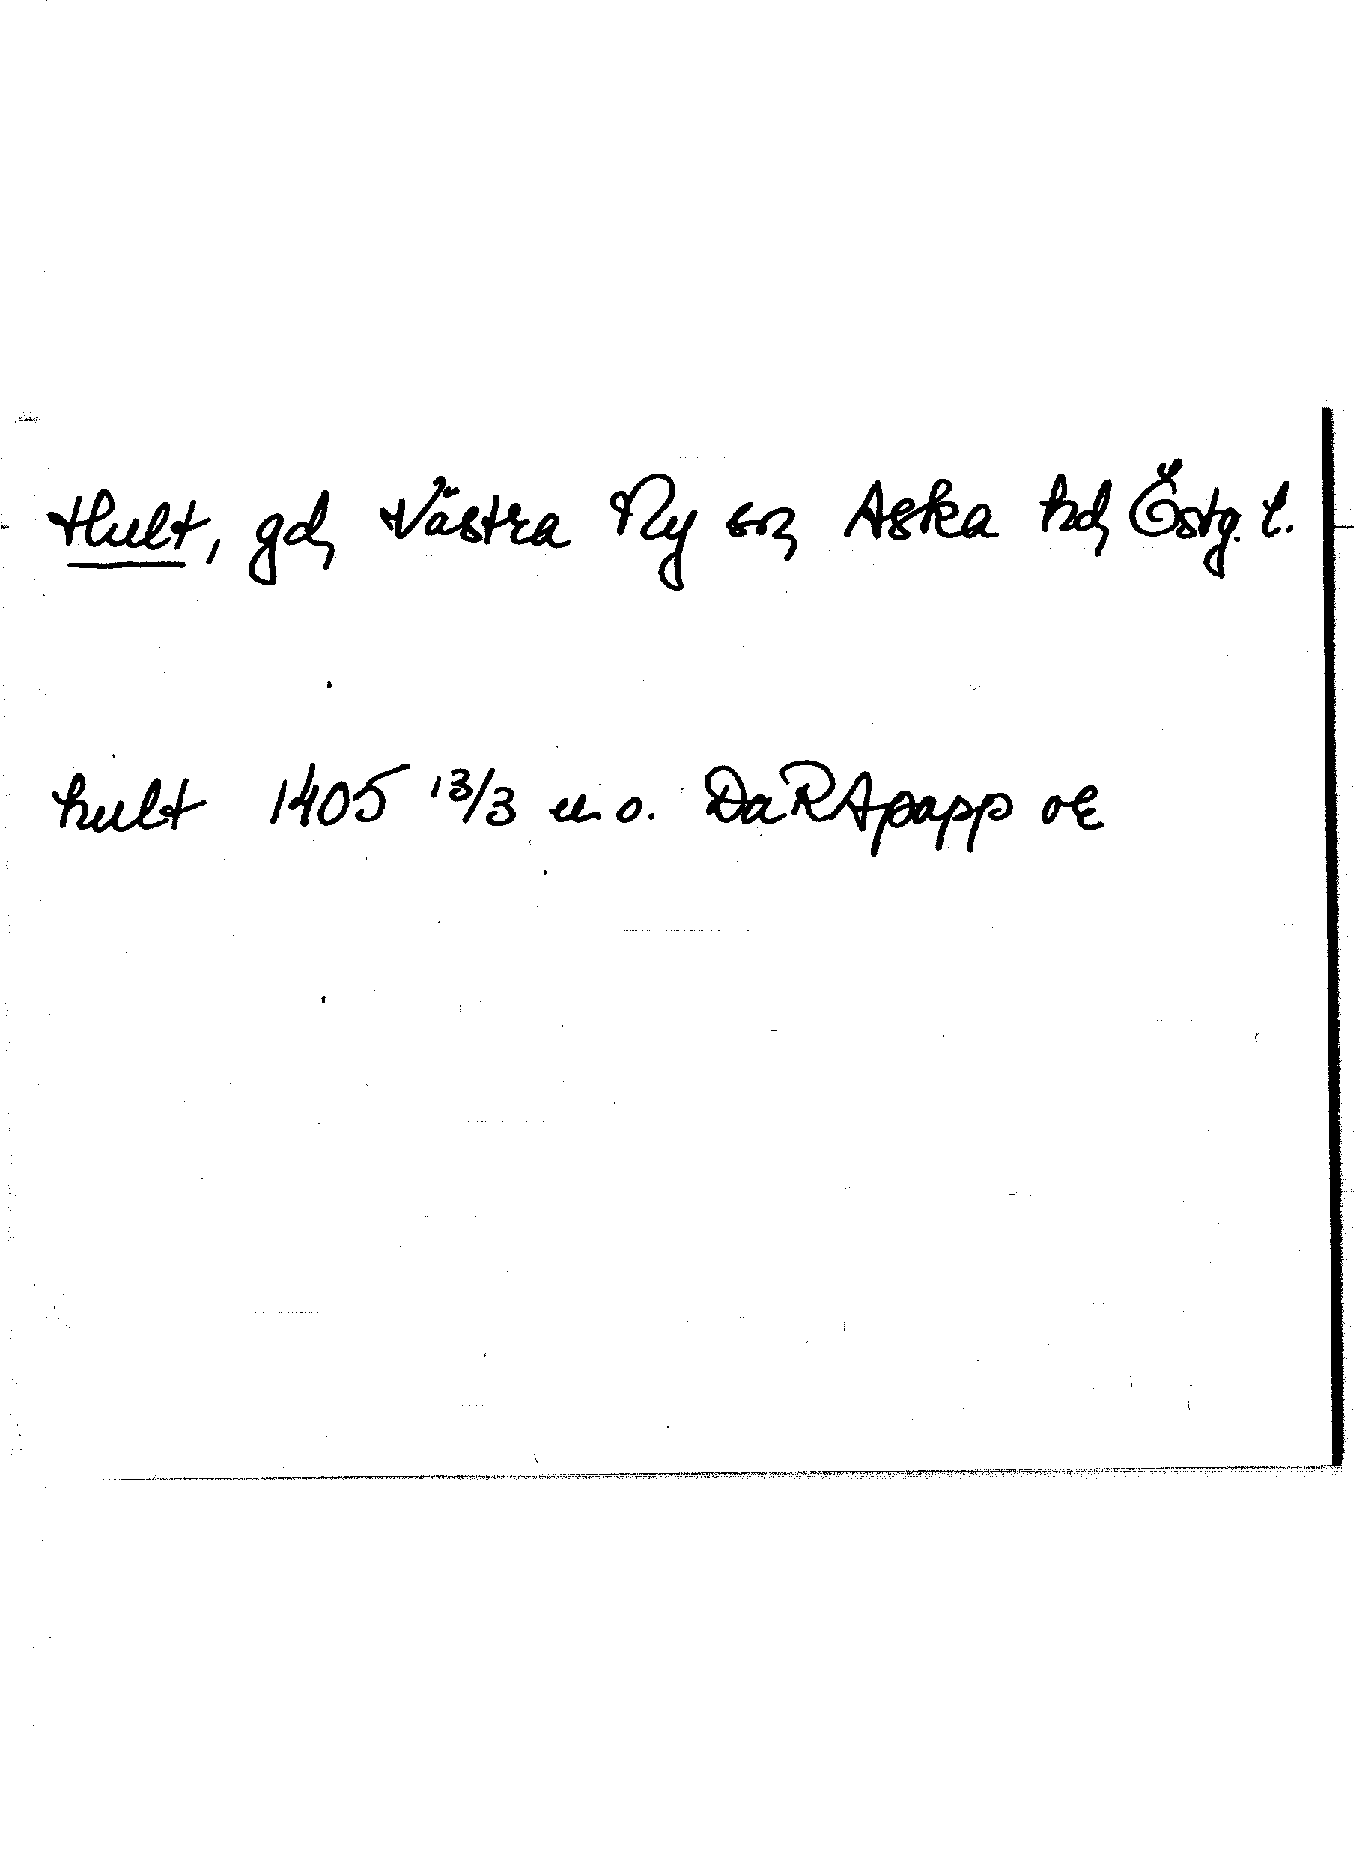 Hult, gd, Västra Ny sn, Aska hd, Östg. l.
hult 1405 13/3 u. o. DaRApapp or